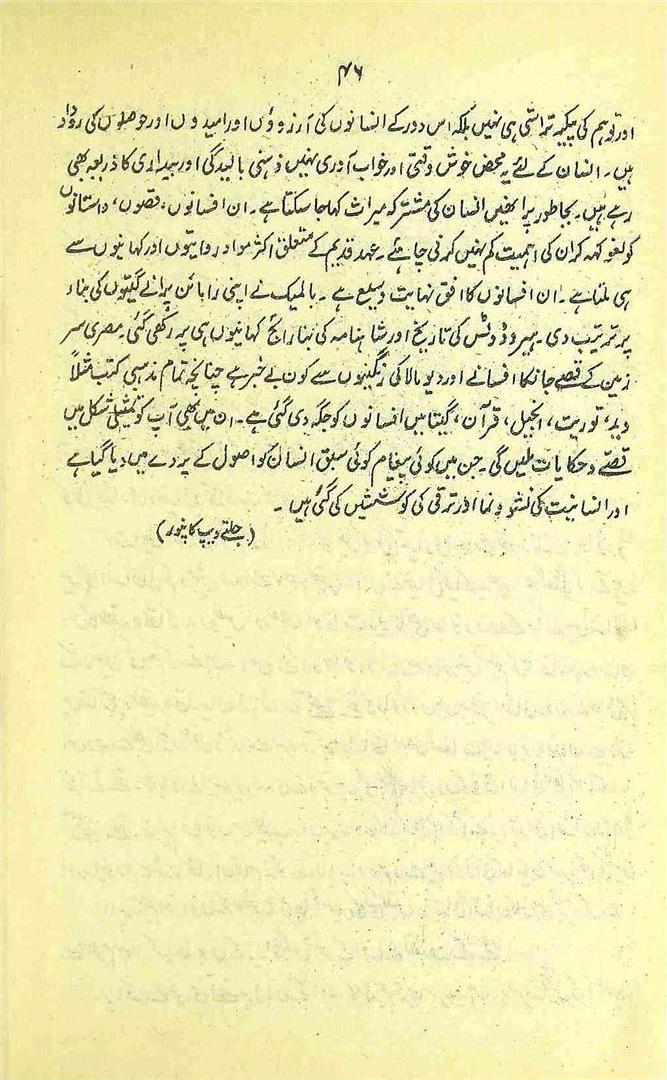 ۴۶
اور توہم کی پیکر تراشی ہی نہیں بلکہ اس دور کے انسانوں کی آرزوؤں اور امیدوں اور حوصلوں کی روداد
ہیں۔ انسان کے لئے یہ محض خوش وقتی اور خواب آوری نہیں ذہنی بالیدگی اور بیداری کا ذریعہ بھی
رہے ہیں۔ بجا طور پر انھیں انسان کی مشترکہ میراث کہا جا سکتا ہے۔ ان افسانوں، قصوں، داستانوں
کو لغو کہہ کر ان کی اہمیت کم نہیں کرنی چاہئے۔ عہد قدیم کے متعلق اکثر مواد روایتوں اور کہانیوں سے
ہی ملتا ہے۔ ان افسانوں کا افق نہایت وسیع ہے۔ بالمیک نے اپنی رامائن پرانے گیتوں کی بناء
پر ترتیب دی۔ ہیروڈوٹس کی تاریخ اور شاہنامہ کی بنا رائج کہانیوں ہی پر رکھی گئی۔ مصری سر
زمین کے قصے جانکا افسانے اور دیو مالا کی رنگینیوں سے کون بے خبر ہے چنانچہ تمام مذہبی کتب مثلاً
وید، توریت، انجیل، قرآن، گیتا میں افسانوں کو جگہ دی گئی ہے۔ ان میں بھی آپ کو تمثیلی شکل میں
قصے و حکایات ملیں گی۔ جن میں کوئی پیغام کوئی سبق انسان کو اصول کے پردے میں دیا گیا ہے
اور انسانیت کی نشو و نما اور ترقی کی کوششیں کی گئی ہیں۔
(جلتے دیپ کانپور)